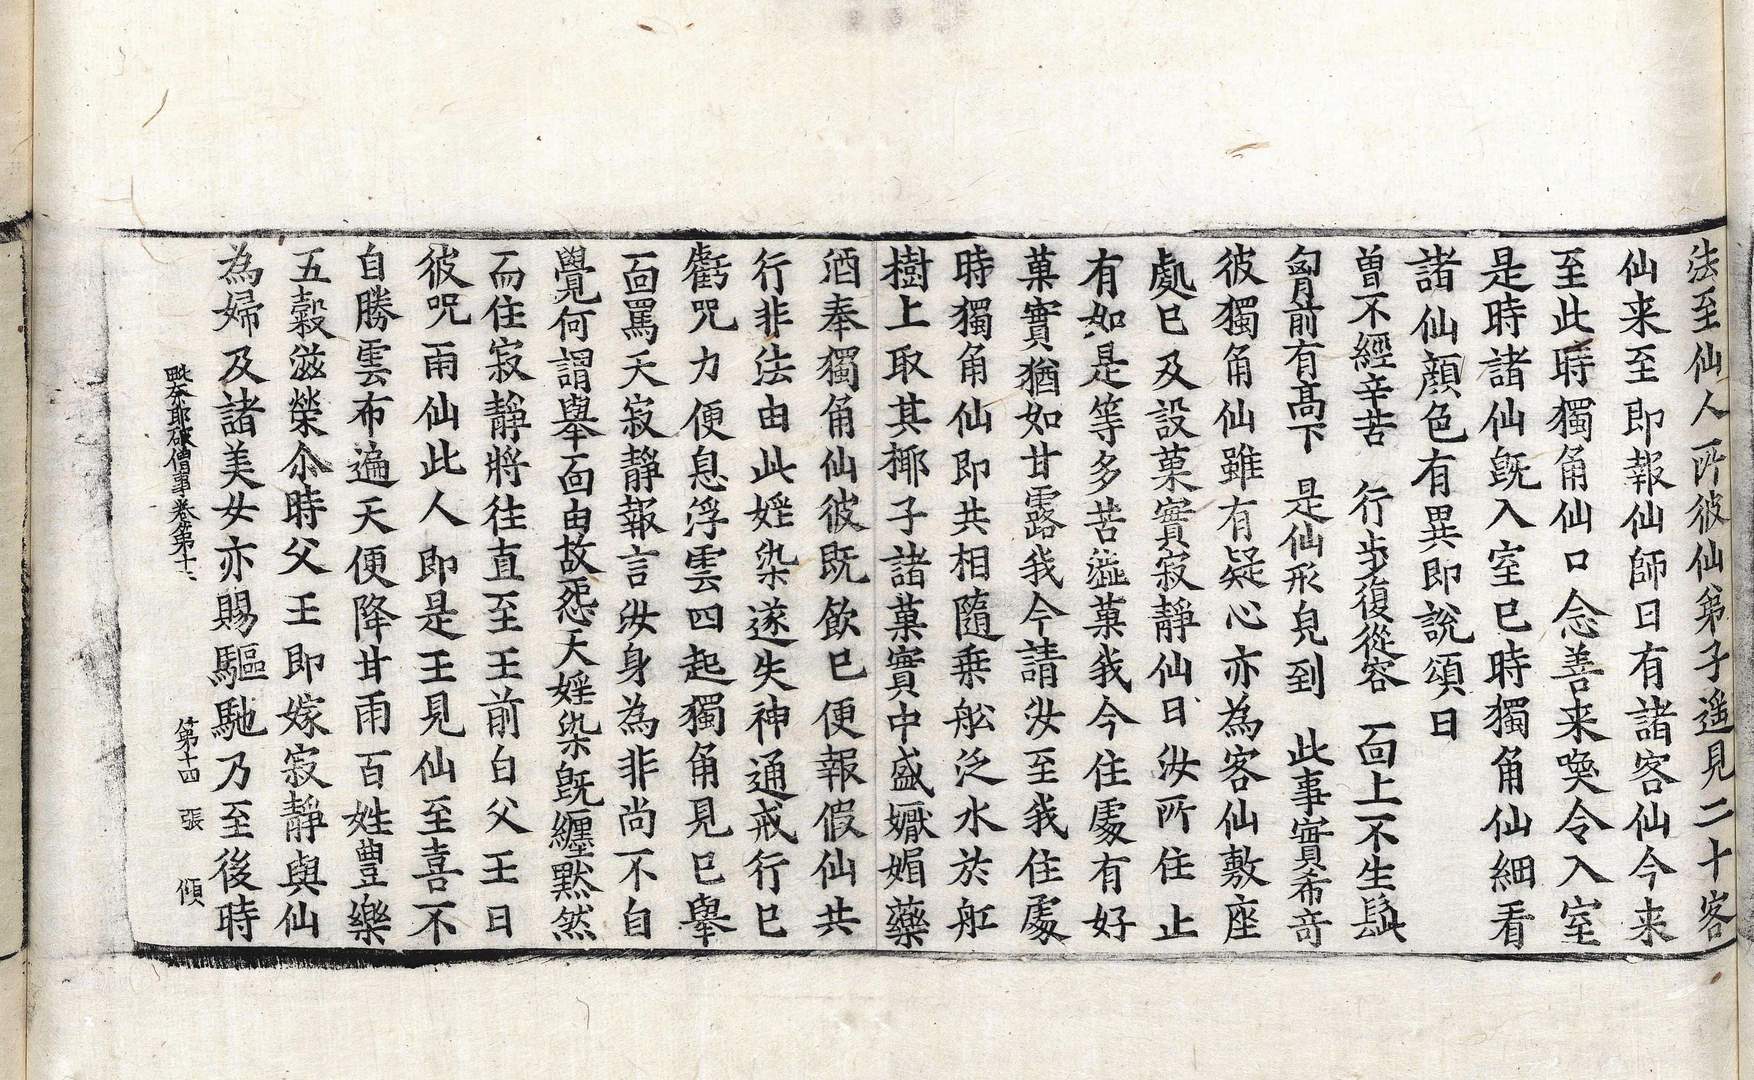 法至仙人所彼仙第子遥見二十客
仙来至即報仙師曰有諸客仙今来
至此時獨角仙口念善来喚令入室
是時諸仙旣入室已時獨角仙細看
諸仙顔色有異即說頌曰
曽不經辛苦 行步復從容 面上不生䰅
匈前有髙下 是仙形皃到 此事實希竒
彼獨角仙雖有疑心亦為客仙敷座
處已及設菓實寂靜仙曰汝所住止
有如是等多苦澁菓我今住處有好
菓實猶如甘露我今請汝至我住處
時獨角仙即共相隨乗舩泛水於舡
樹上取其揶子諸菓實中盛嬮媚藥
酒奉獨角仙彼既飲已便報假仙共
行非法由此婬染遂失神通戒行已
虧咒力便息浮雲四起獨角見已舉
面罵天寂靜報言汝身為非尚不自
覺何謂舉面由故怨天婬染旣纏黙然
而住寂靜將往直至王前白父王曰
彼咒雨仙此人即是王見仙至喜不
自勝雲布遍天便降甘雨百姓豊樂
五穀滋榮尒時父王即嫁寂靜與仙
為婦及諸美女亦賜驅馳乃至後時
毗奈耶破僧事卷第十六 第十四 張 傾